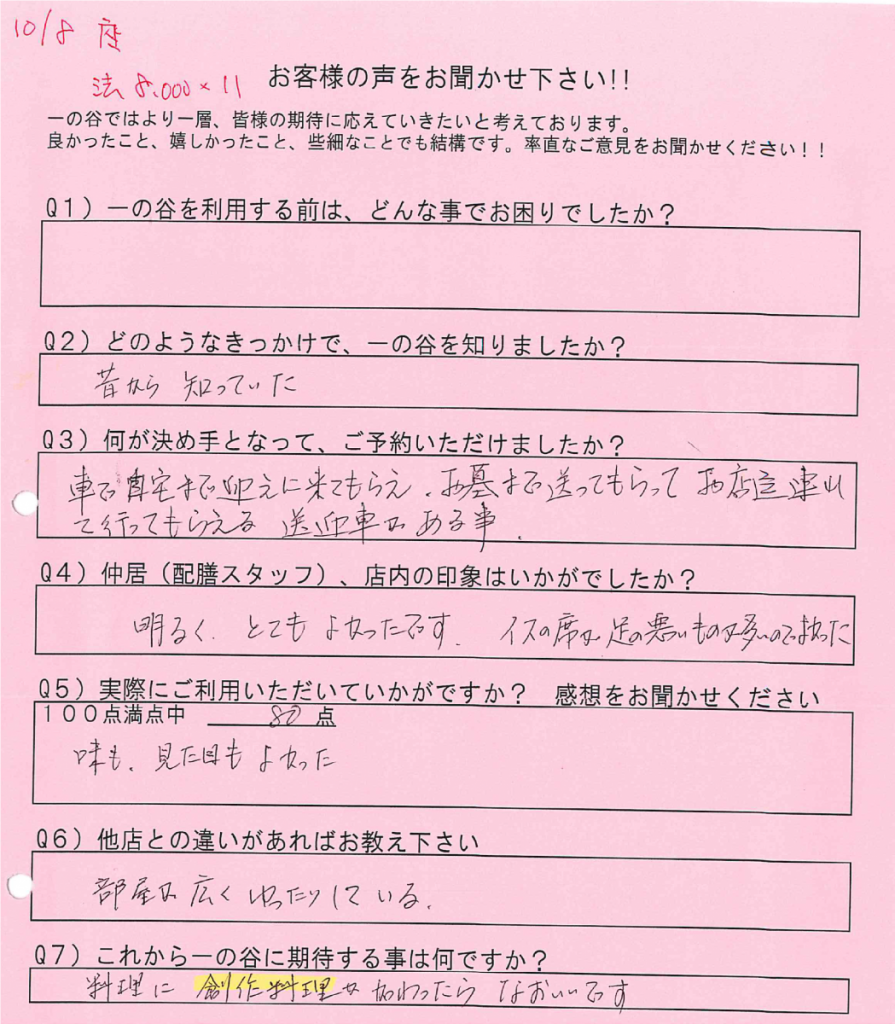 10/8 座
法 8,000×11
お客様の声をお聞かせ下さい!!
一の谷ではより一層、皆様の期待に応えていきたいと考えております。
良かったこと、嬉しかったこと、些細なことでも結構です。率直なご意見をお聞かせください!!
Q1)一の谷を利用する前は、どんな事でお困りでしたか?
Q2)どのようなきっかけで、一の谷を知りましたか?
昔から 知っていた
Q3)何が決め手となって、ご予約いただけましたか?
車で自宅まで迎えに来てもらえ、お墓まで送ってもらって お店迄連れ
て行ってもらえる 送迎車が ある事.
Q4)仲居(配膳スタッフ)、店内の印象はいかがでしたか?
明るく、とても よかったです. イスの席が 足の悪いものが多いのでよかった
Q5)実際にご利用いただいていかがですか? 感想をお聞かせください
100点満点中 80 点
味も、見た目も よかった
Q6)他店との違いがあればお教え下さい
部屋が 広く ゆったりしている.
Q7)これから一の谷に期待する事は何ですか?
料理に 創作料理が 加わったら なおいいです